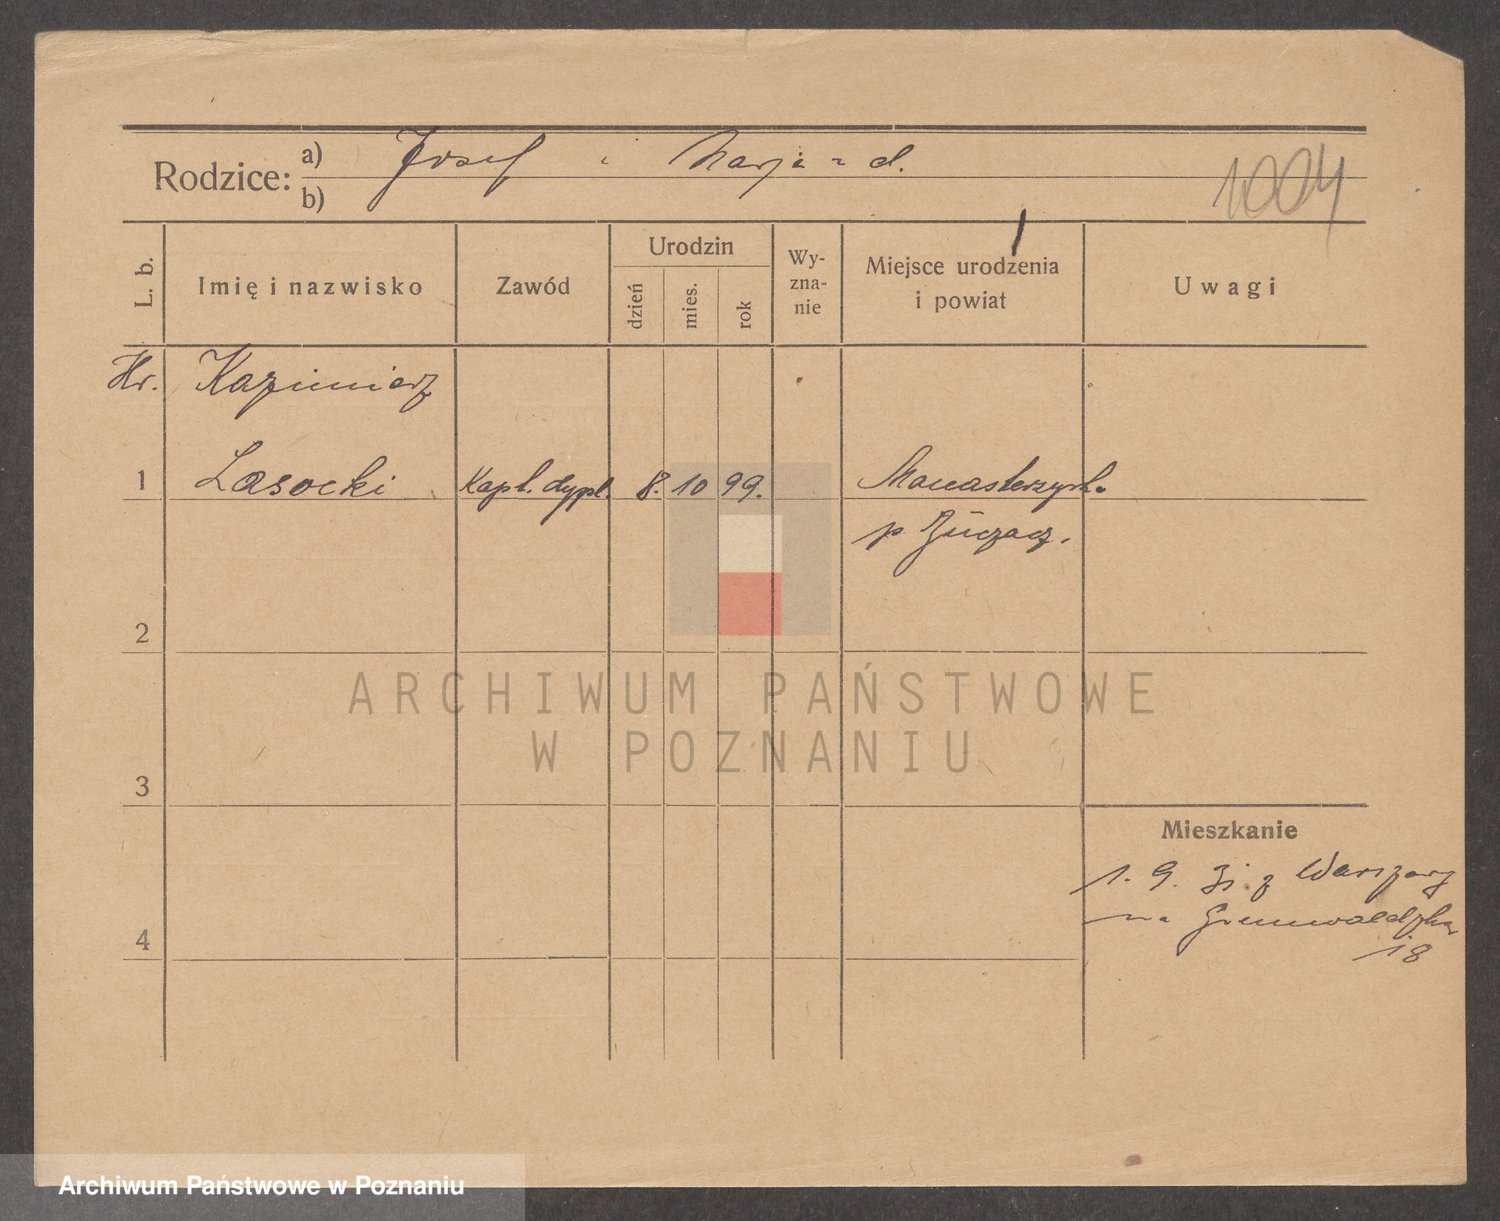 Rodzice:
a) Josef i Marja z d.
b)
1004
L. b.
Imię i nazwisko
Zawód
Urodzin
dzień
mies.
rok
Wy-
zna-
nie
Miejsce urodzenia
i powiat
Uwagi
Hr. Kazimierz
1 Lasocki Kapt. dypl. 8. 10 99. Monasterzysk.
p. Buczacz.
2
ARCHIWUM PAŃSTWOWE
W POZNANIU
3
Mieszkanie
1. 9. 31. z Warszawy
na Grunwaldzka
18
4
Archiwum Państwowe w Poznaniu